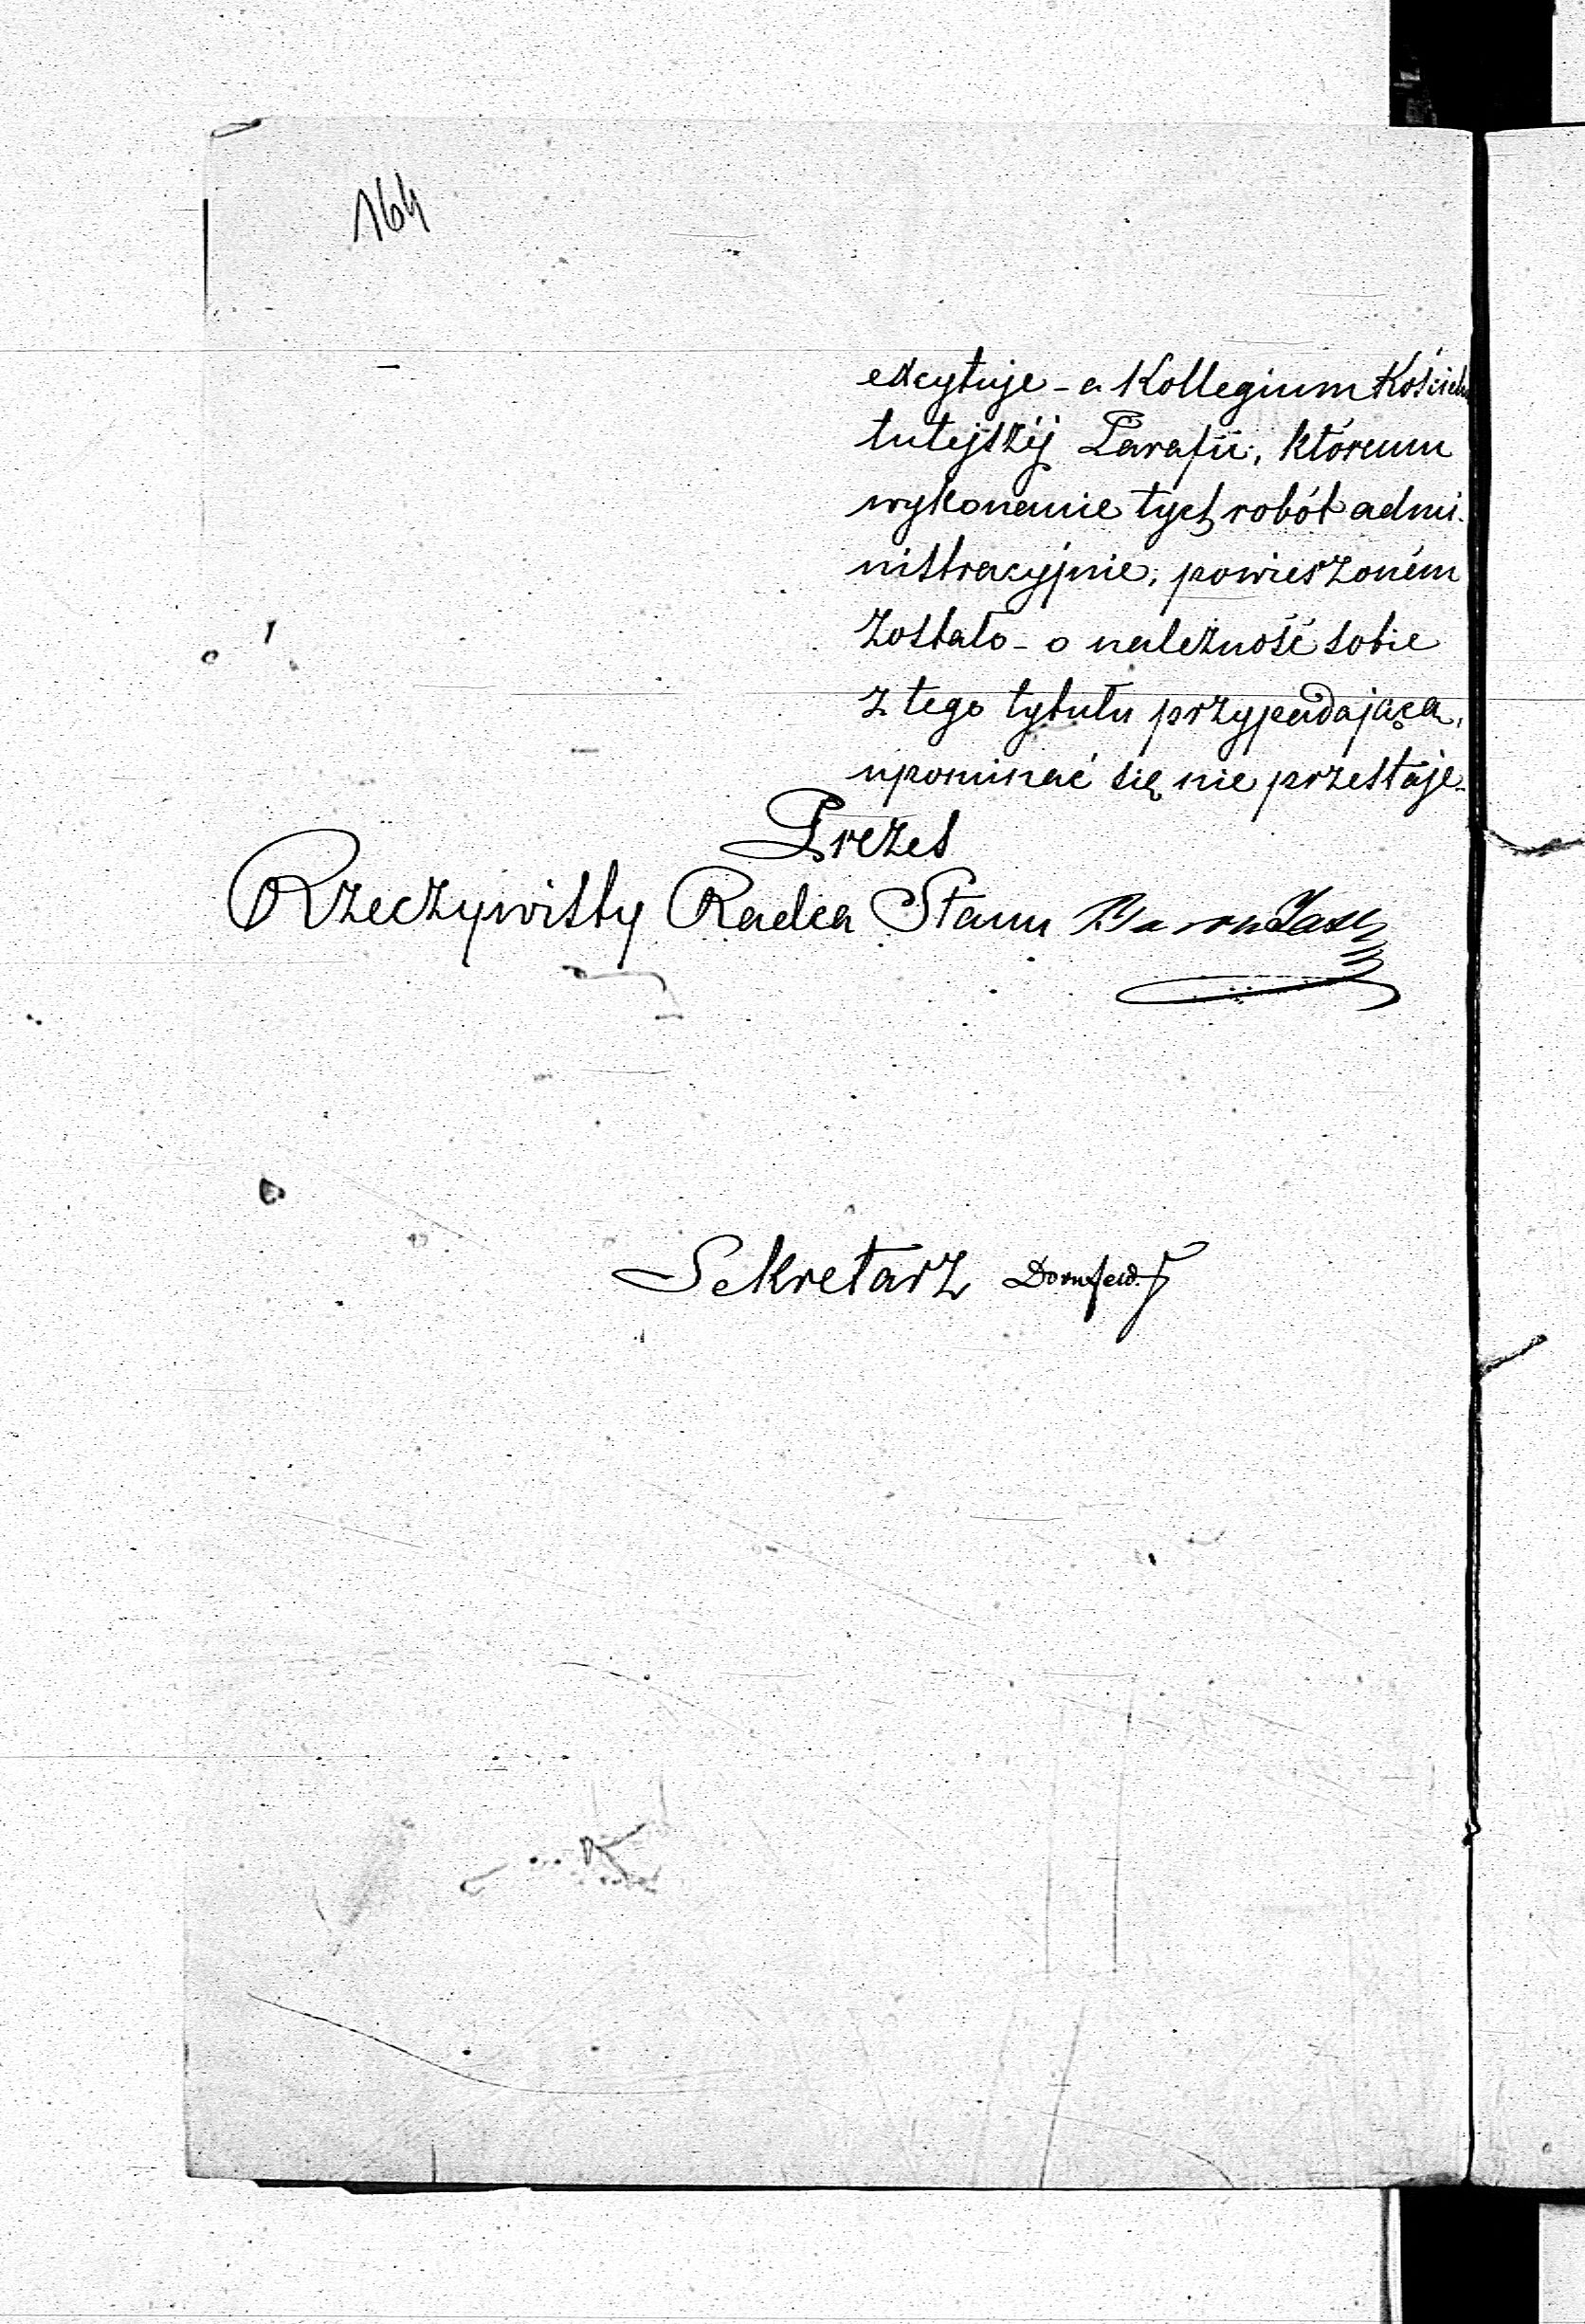 164
excytuje - a Kollegium Kościeln
tutejszéj Parafii, któremu
wykonanie tych robót admi-
nistracyjnie, powierzoném
zostało - o należność sobie
z tego tytułu przypadającą,
upominać się nie przestaje.
Prezes
Rzeczywisty Radca Stanu
Sekretarz Dornfeld